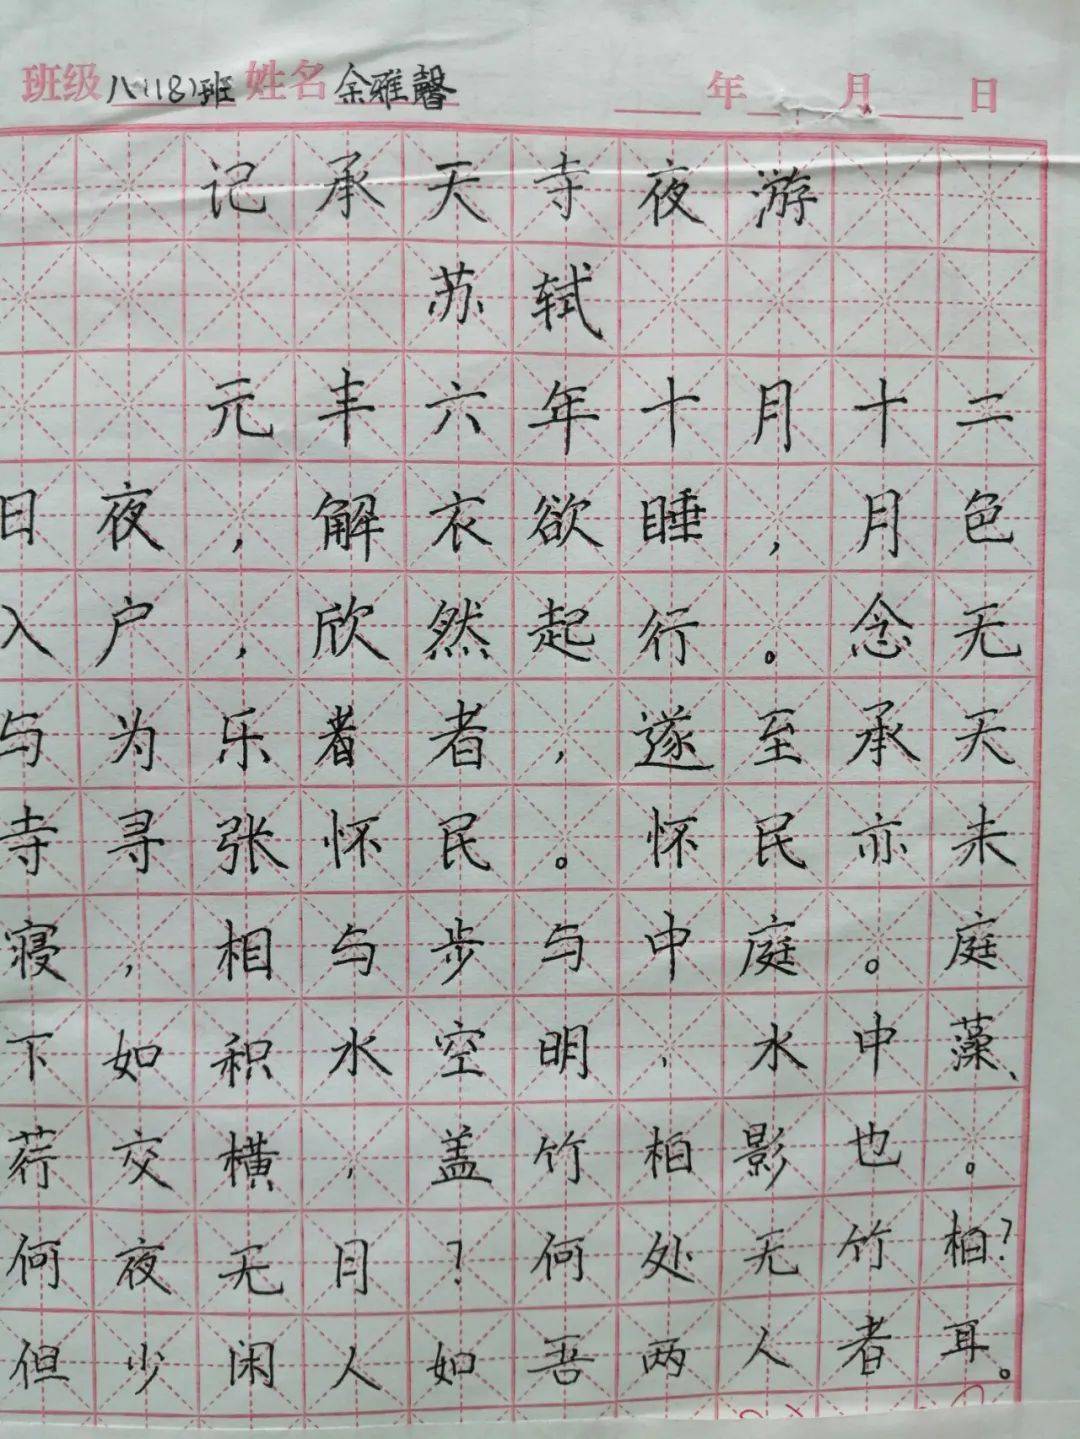 班级 八(18)班 姓名 余雅馨 年 月 日
记承天寺夜游
苏轼
元丰六年十月十二
日夜，解衣欲睡，月色
入户，欣然起行。念无
与为乐者者，遂至承天
寺寻张怀民。怀民亦未
寝，相与步与中庭。庭
下如积水空明，水中藻、
荇交横，盖竹柏影也。
何夜无月？何处无竹柏？
但少闲人如吾两人者耳。